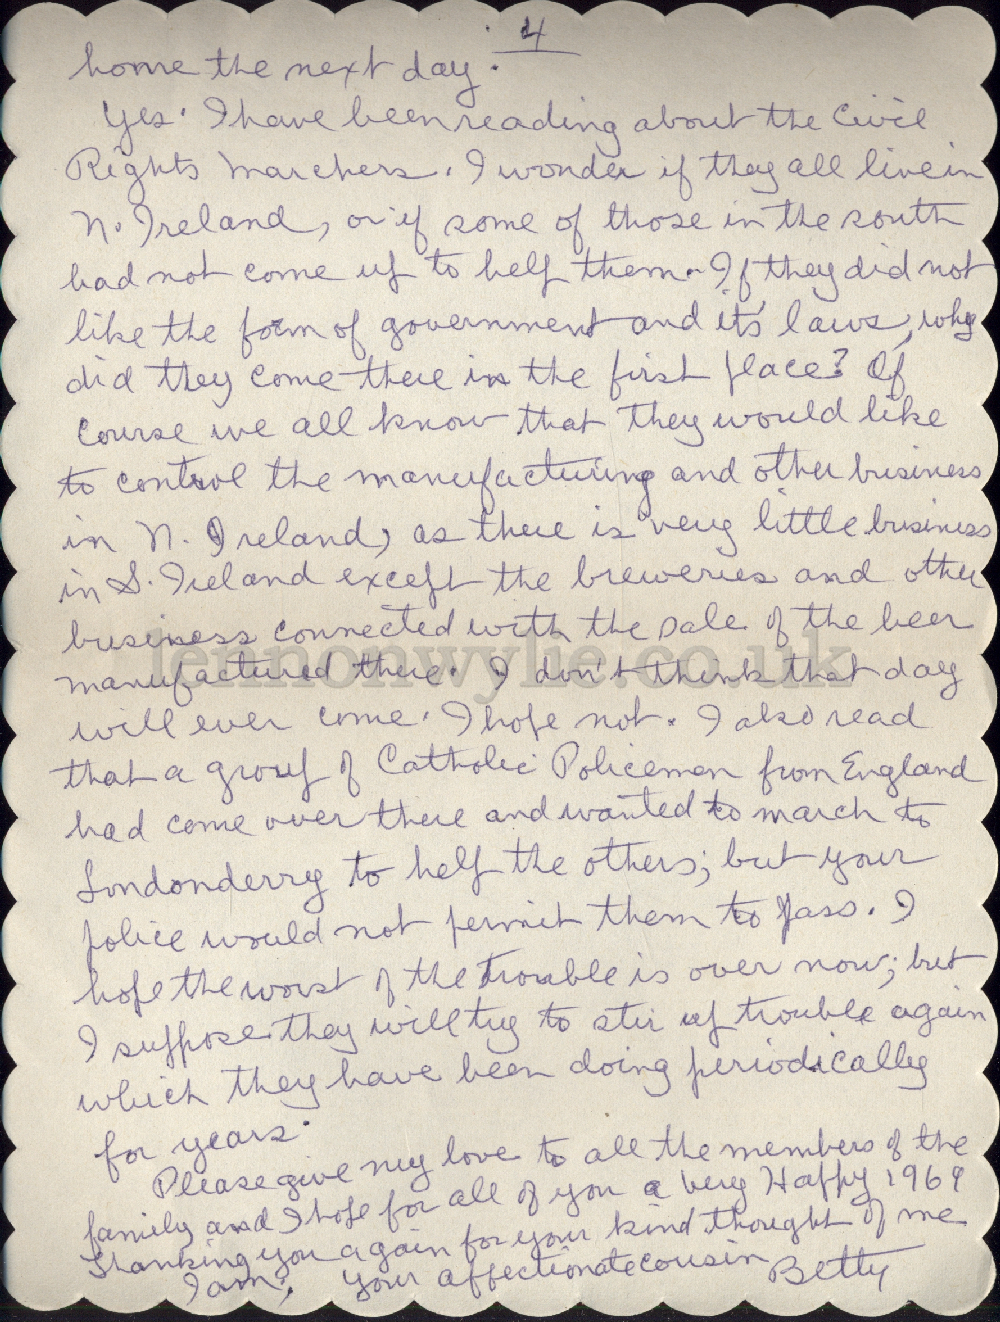 4
home the next day.
Yes. I have been reading about the Civil
Rights Marchers. I wonder if they all live in
N. Ireland, or if some of those in the south
had not come up to help them. If they did not
like the form of government and it's laws, why
did they come there in the first place? Of
course we all know that they would like
to control the manufacturing and other business
in N. Ireland, as there is very little business
in S. Ireland except the breweries and other
business connected with the sale of the beer
manufactured there. I don't think that day
will ever come. I hope not. I also read
that a group of Catholic Policemen from England
had come over there and wanted to march to
Londonderry to help the others; but your
police would not permit them to pass. I
hope the worst of the trouble is over now; but
I suppose they will try to stir up trouble again
which they have been doing periodically
for years.
Please give my love to all the members of the
family and I hope for all of you a very Happy 1969
Thanking you again for your kind thought of me
I am, Your affectionate cousin Betty
lennonwylie.co.uk